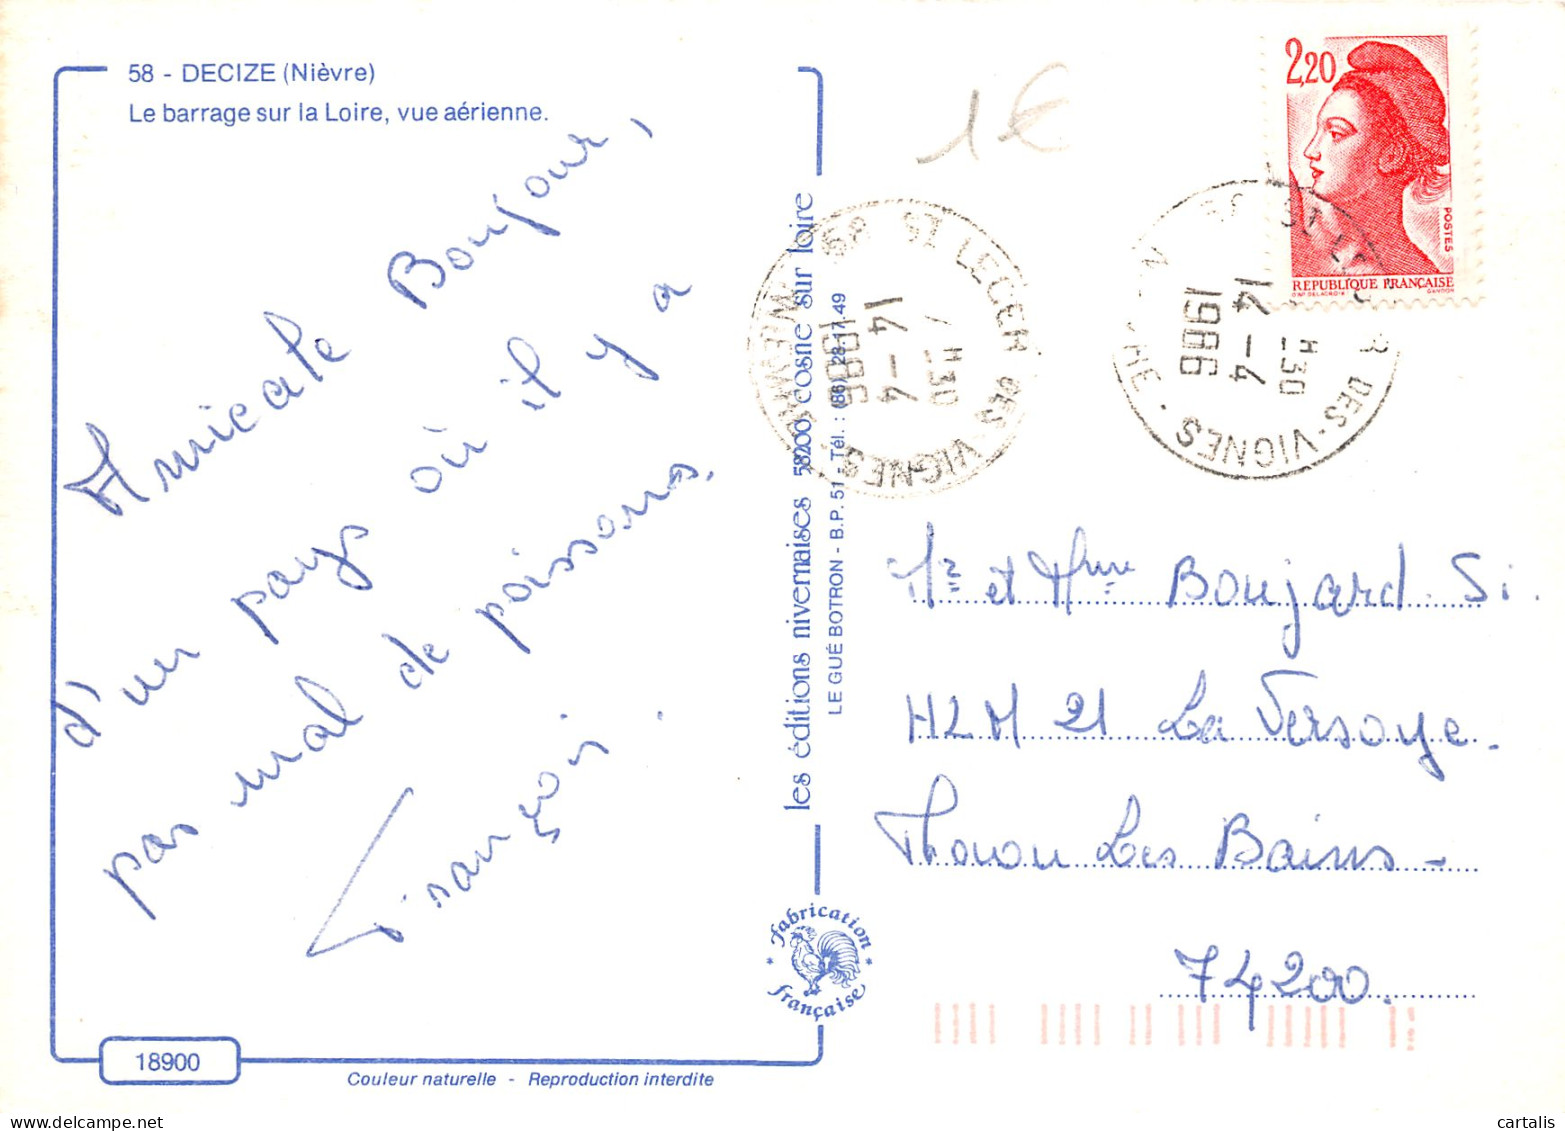 58 - DECIZE (Nièvre)
Le barrage sur la Loire, vue aérienne.
Amicale Bonjour,
d'un pays où il y a
pas mal de poissons.
François.
18900
Couleur naturelle - Reproduction interdite
les éditions nivernaises 58200 cosne sur loire
LE GUÉ BOTRON - B.P. 51 - Tél. : (86) 28-17-49
Fabrication
française
1€
2,20
POSTES
REPUBLIQUE FRANÇAISE
58 ST LEGER DES-VIGNES
H 30
14 - 4
1986
ST LEGER DES-VIGNES
H 30
14 - 4
1986
Mr et Mme Boujard. Si.
HLM 21 La Versoye.
Thonon Les Bains -
74200.
cartalis